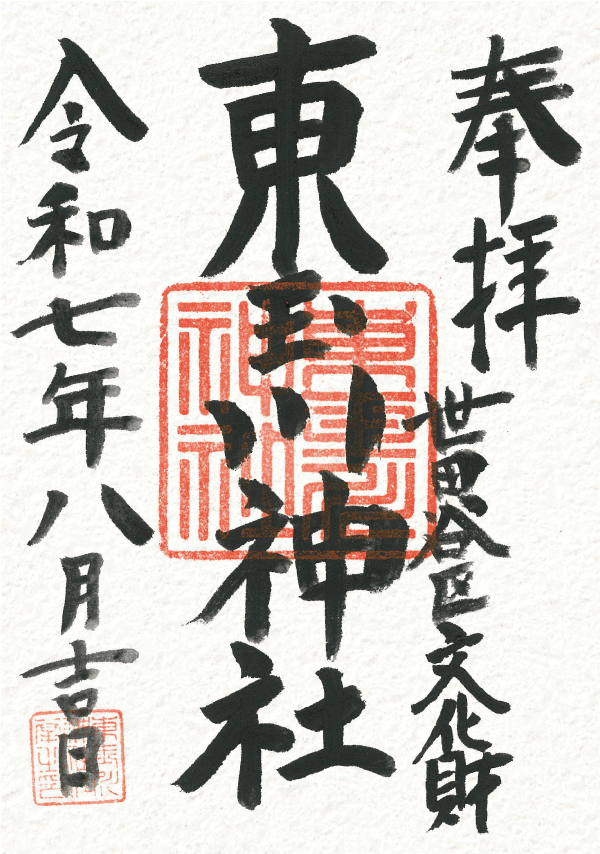 奉拝
世田谷区文化財
東玉川神社
令和七年八月吉日